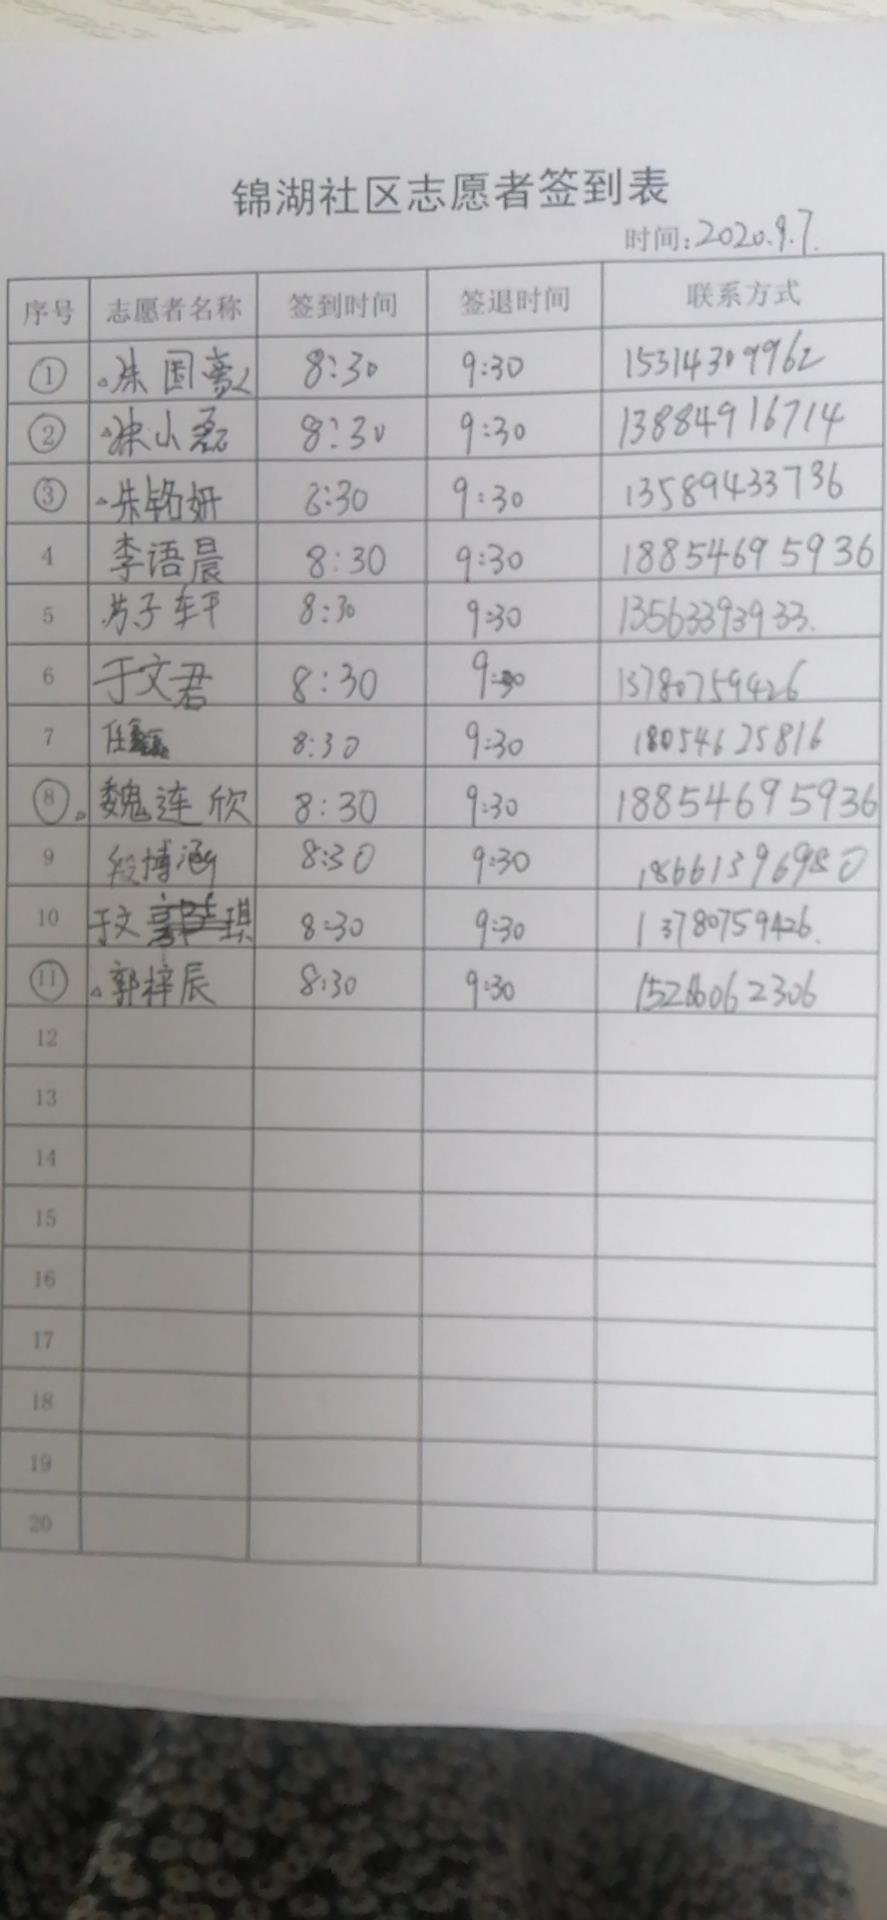 锦湖社区志愿者签到表
时间:2020.9.7.
序号 志愿者名称 签到时间 签退时间 联系方式
① 国 8:30 9:30 15314309962
② 小磊 8:30 9:30 13884916714
③ 朱铭妍 8:30 9:30 13589433736
4 李语晨 8:30 9:30 18854695936
5 苏子轩 8:30 9:30 13563393933.
6 于文君 8:30 9:30 13780759426
7 任 8:30 9:30 18054625816
⑧ 魏连欣 8:30 9:30 18854695936
9 段博涵 8:30 9:30 18661396980
10 于文琪 8:30 9:30 13780759426.
⑪ 郭梓辰 8:30 9:30
12
13
14
15
16
17
18
19
20